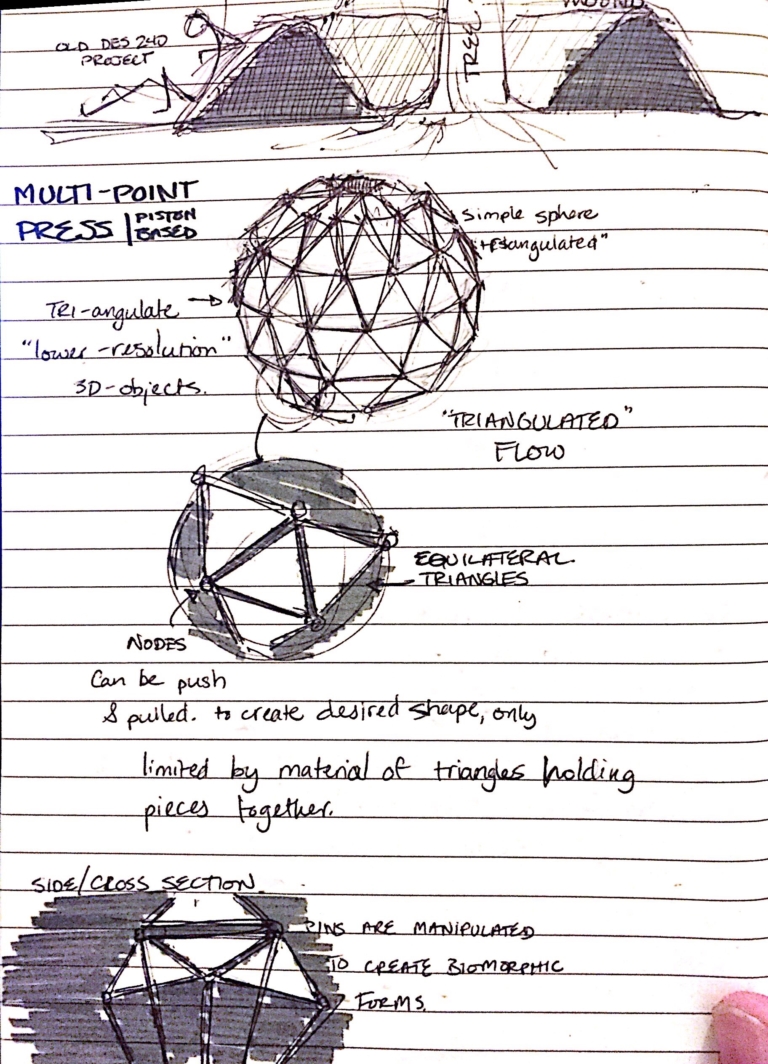 MOUND
TREE
OLD DES 240
PROJECT
MULTI-POINT
PRESS | PISTON
BASED
simple sphere
"triangulated"
TRI-angulate
"lower-resolution"
3D-objects.
"TRIANGULATED"
FLOW
EQUILATERAL
TRIANGLES
NODES
Can be push
& pulled. to create desired shape, only
limited by material of triangles holding
pieces together.
SIDE/CROSS SECTION.
PINS ARE MANIPULATED
TO CREATE BIOMORPHIC
FORMS.